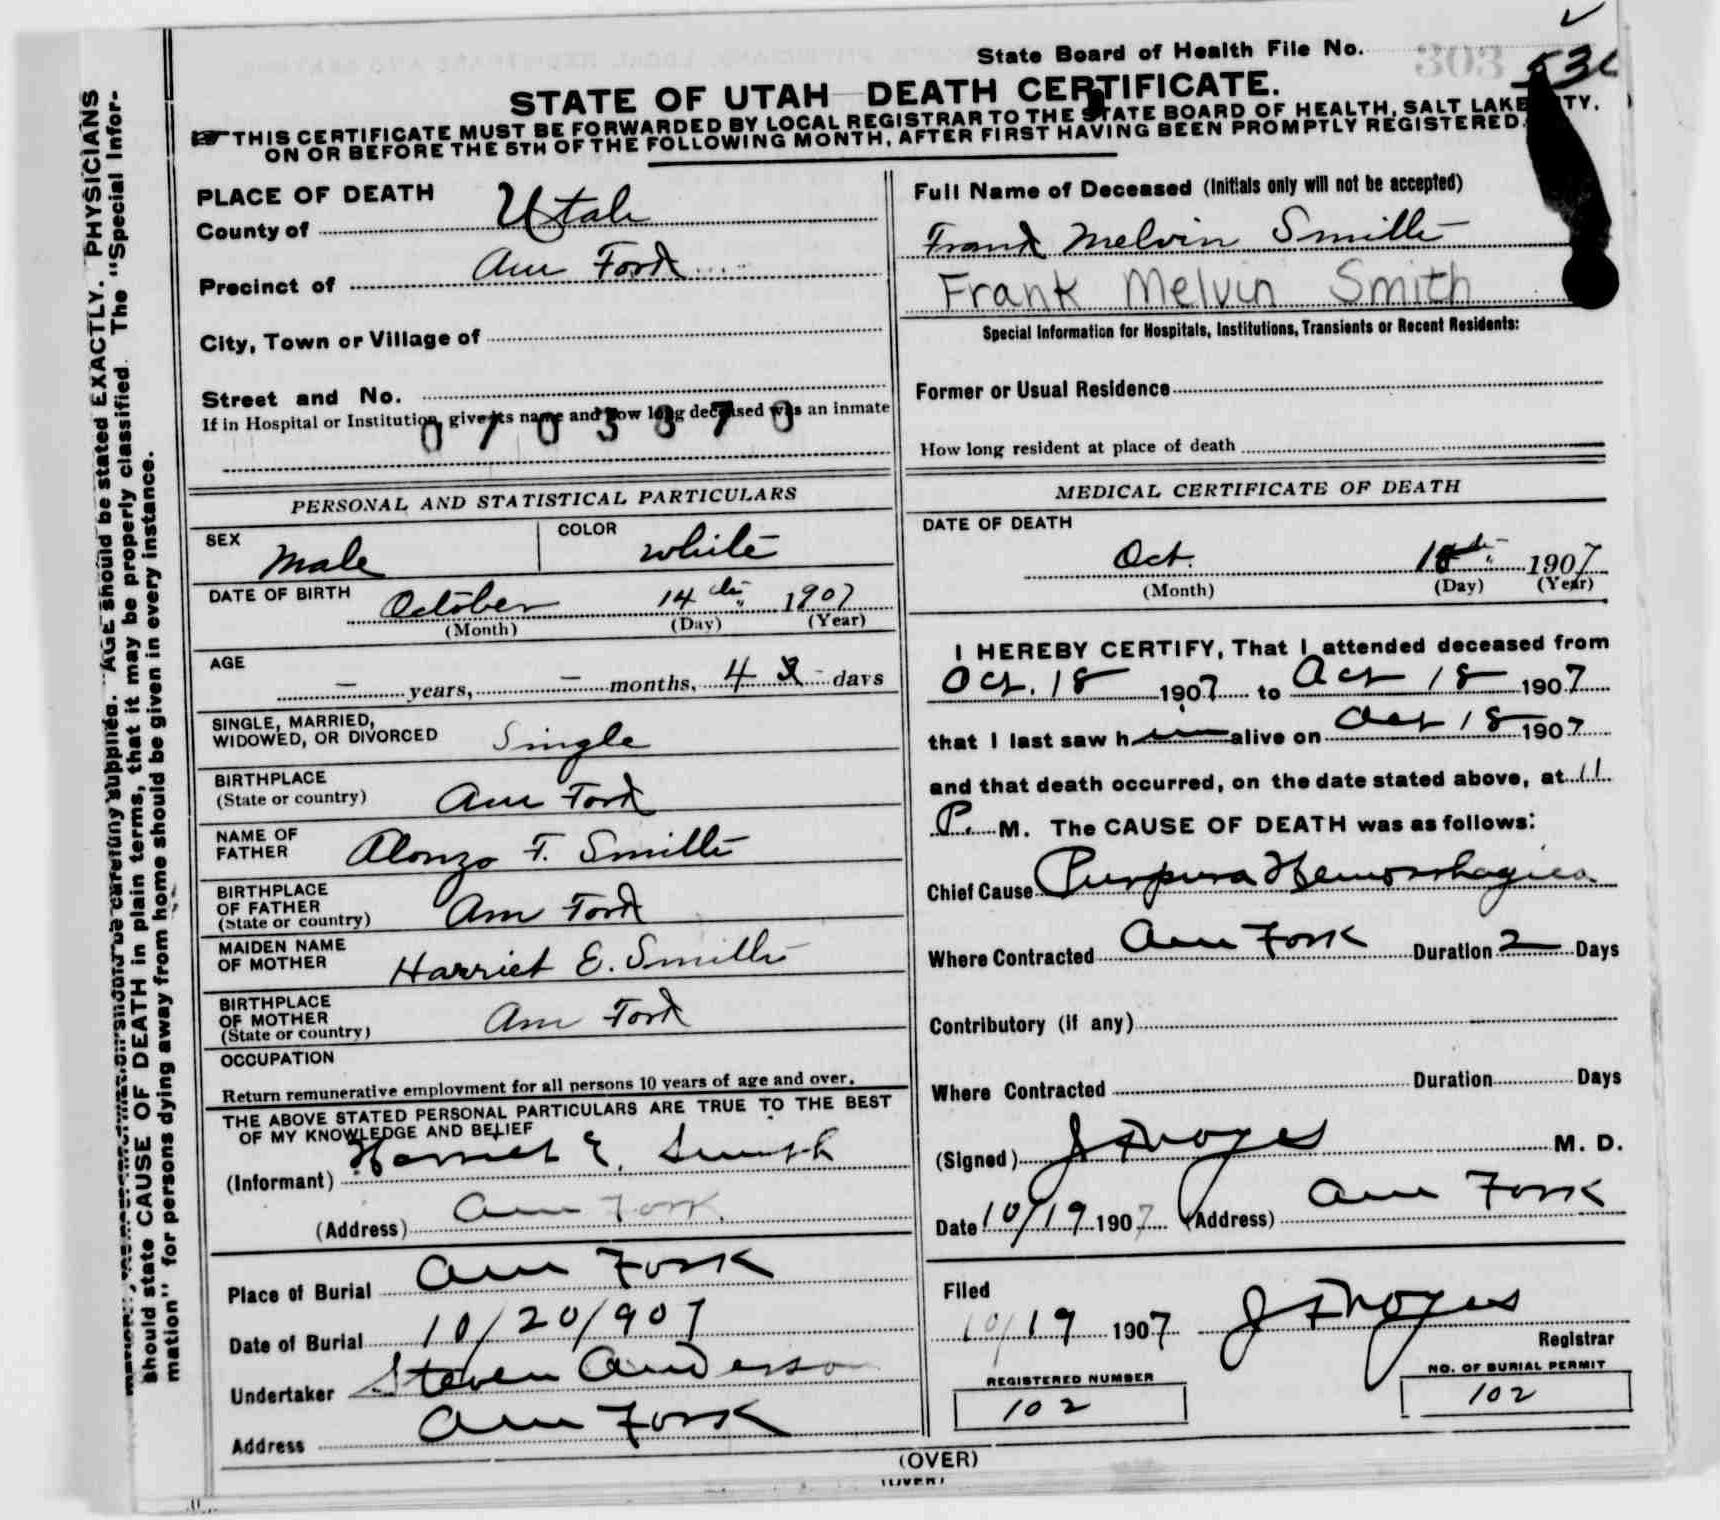 State Board of Health File No. 303
STATE OF UTAH—DEATH CERTIFICATE.
THIS CERTIFICATE MUST BE FORWARDED BY LOCAL REGISTRAR TO THE STATE BOARD OF HEALTH, SALT LAKE CITY,
ON OR BEFORE THE 5TH OF THE FOLLOWING MONTH, AFTER FIRST HAVING BEEN PROMPTLY REGISTERED.
PLACE OF DEATH
County of Utah
Precinct of Am Fork
City, Town or Village of
Street and No.
If in Hospital or Institution, give its name and how long deceased was an inmate
Full Name of Deceased (Initials only will not be accepted)
Frank Melvin Smith
Frank Melvin Smith
Special Information for Hospitals, Institutions, Transients or Recent Residents:
Former or Usual Residence
How long resident at place of death
PERSONAL AND STATISTICAL PARTICULARS
SEX Male COLOR White
DATE OF BIRTH October 14th 1907
(Month) (Day) (Year)
AGE – years, – months, 4 days
SINGLE, MARRIED,
WIDOWED, OR DIVORCED Single
BIRTHPLACE
(State or country) Am Fork
NAME OF
FATHER Alonzo F. Smith
BIRTHPLACE
OF FATHER
(State or country) Am Fork
MAIDEN NAME
OF MOTHER Harriet E. Smith
BIRTHPLACE
OF MOTHER
(State or country) Am Fork
OCCUPATION
Return remunerative employment for all persons 10 years of age and over.
THE ABOVE STATED PERSONAL PARTICULARS ARE TRUE TO THE BEST
OF MY KNOWLEDGE AND BELIEF
(Informant) Harriet E. Smith
(Address) Am Fork
Place of Burial Am Fork
Date of Burial 10/20/907
Undertaker Steven Anderson
Address Am Fork
MEDICAL CERTIFICATE OF DEATH
DATE OF DEATH
Oct. 18th 1907
(Month) (Day) (Year)
I HEREBY CERTIFY, That I attended deceased from
Oct. 18 1907 to Oct 18 1907
that I last saw him alive on Oct 18 1907
and that death occurred, on the date stated above, at 11
P. M. The CAUSE OF DEATH was as follows:
Chief Cause Purpura Hemorrhagica
Where Contracted Am Fork Duration 2 Days
Contributory (if any)
Where Contracted Duration Days
(Signed) J F Noyes M. D.
Date 10/19 1907 (Address) Am Fork
Filed
10/19 1907 J F Noyes
Registrar
REGISTERED NUMBER
102
NO. OF BURIAL PERMIT
102
(OVER)
(OVER)
AGE should be stated EXACTLY. PHYSICIANS
should state CAUSE OF DEATH in plain terms, that it may be properly classified. The "Special Infor-
mation" for persons dying away from home should be given in every instance.